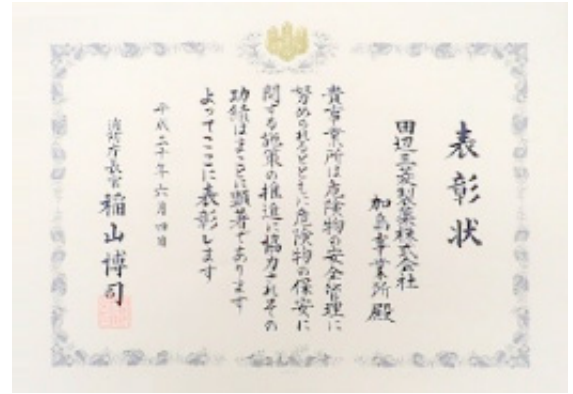 表彰状
田辺三菱製薬株式会社
加島事業所殿
貴事業所は危険物の安全管理に
努められるとともに危険物の保安に
関する施策の推進に協力されその
功績はまことに顕著であります
よってここに表彰します
平成二十年六月四日
消防庁長官 稲山博司